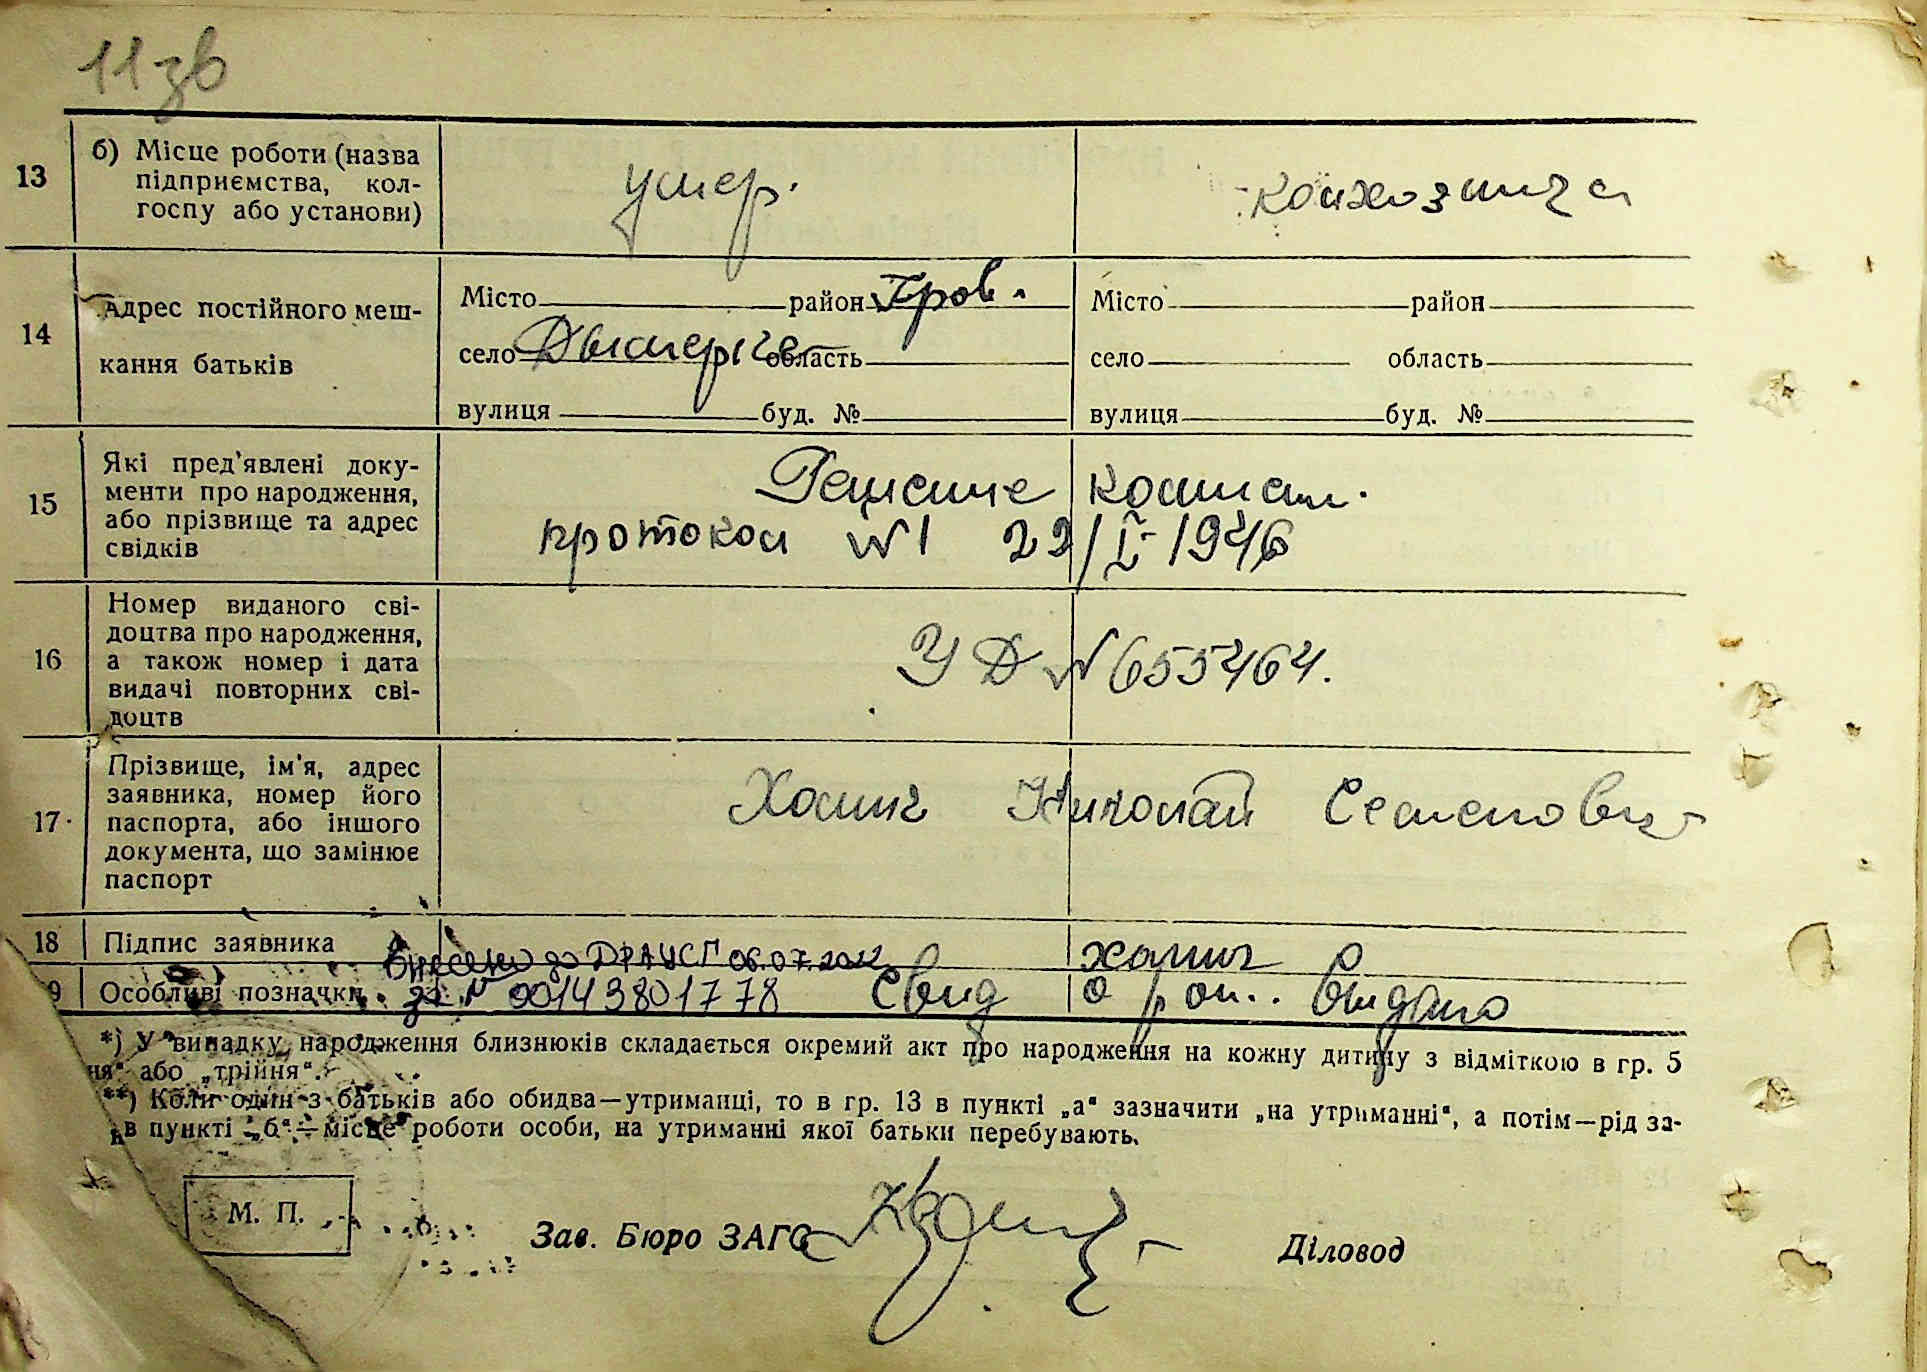 11зв
13 б) Місце роботи (назва
підприємства, кол-
госпу або установи)
умер.
колхозница
14 Адрес постійного меш-
кання батьків
Місто район Бров.
село Дымерка область
вулиця буд. №
Місто район
село область
вулиця буд. №
15 Які пред'явлені доку-
менти про народження,
або прізвище та адрес
свідків
Решение комисии.
протокол №1 22/I-1946
16 Номер виданого сві-
доцтва про народження,
а також номер і дата
видачі повторних сві-
доцтв
УД №655464.
17 Прізвище, ім'я, адрес
заявника, номер його
паспорта, або іншого
документа, що замінює
паспорт
Николай Семенович
18 Підпис заявника
Внесено до ДРАЦСГ 06.07.2022
19 Особливі позначки за № 00143801778 Свид о рож. выдано
*) У випадку народження близнюків складається окремий акт про народження на кожну дитину з відміткою в гр. 5
ня" або „трійня".
**) Коли один з батьків або обидва—утриманці, то в гр. 13 в пункті „а" зазначити „на утриманні", а потім—рід за-
в пункті „б"—місце роботи особи, на утриманні якої батьки перебувають.
М. П.
Зав. Бюро ЗАГС
Діловод